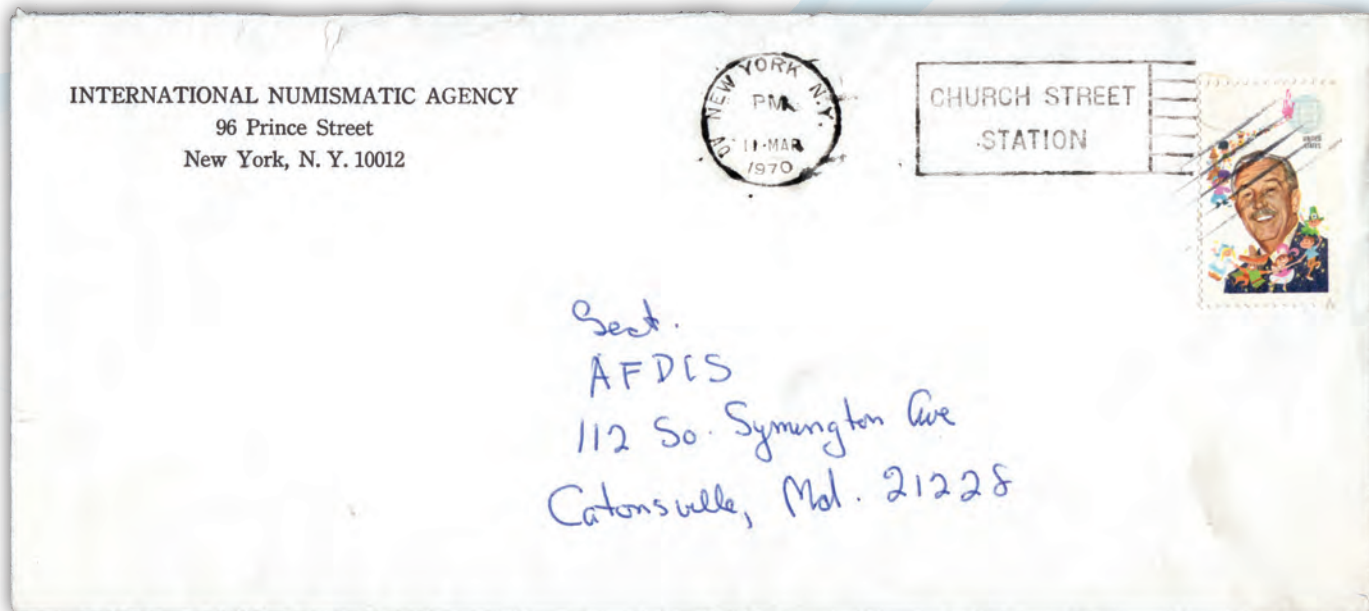 INTERNATIONAL NUMISMATIC AGENCY
96 Prince Street
New York, N. Y. 10012
NEW YORK N.Y.
PM
11-MAR
1970
CHURCH STREET
STATION
UNITED
STATES
Sect.
AFDCS
112 So. Symington Ave
Catonsville, Md. 21228